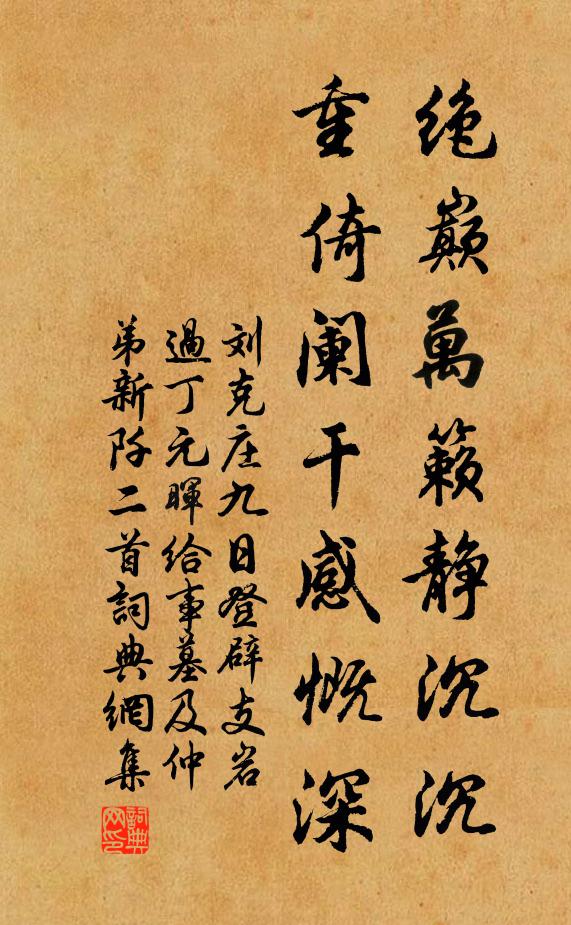 绝巅萬籁静沉沉
重倚阑干感慨深
刘克庄九日登辟支岩
過丁元暉给事墓及仲
弟新阡二首詞典網集
詞典网印